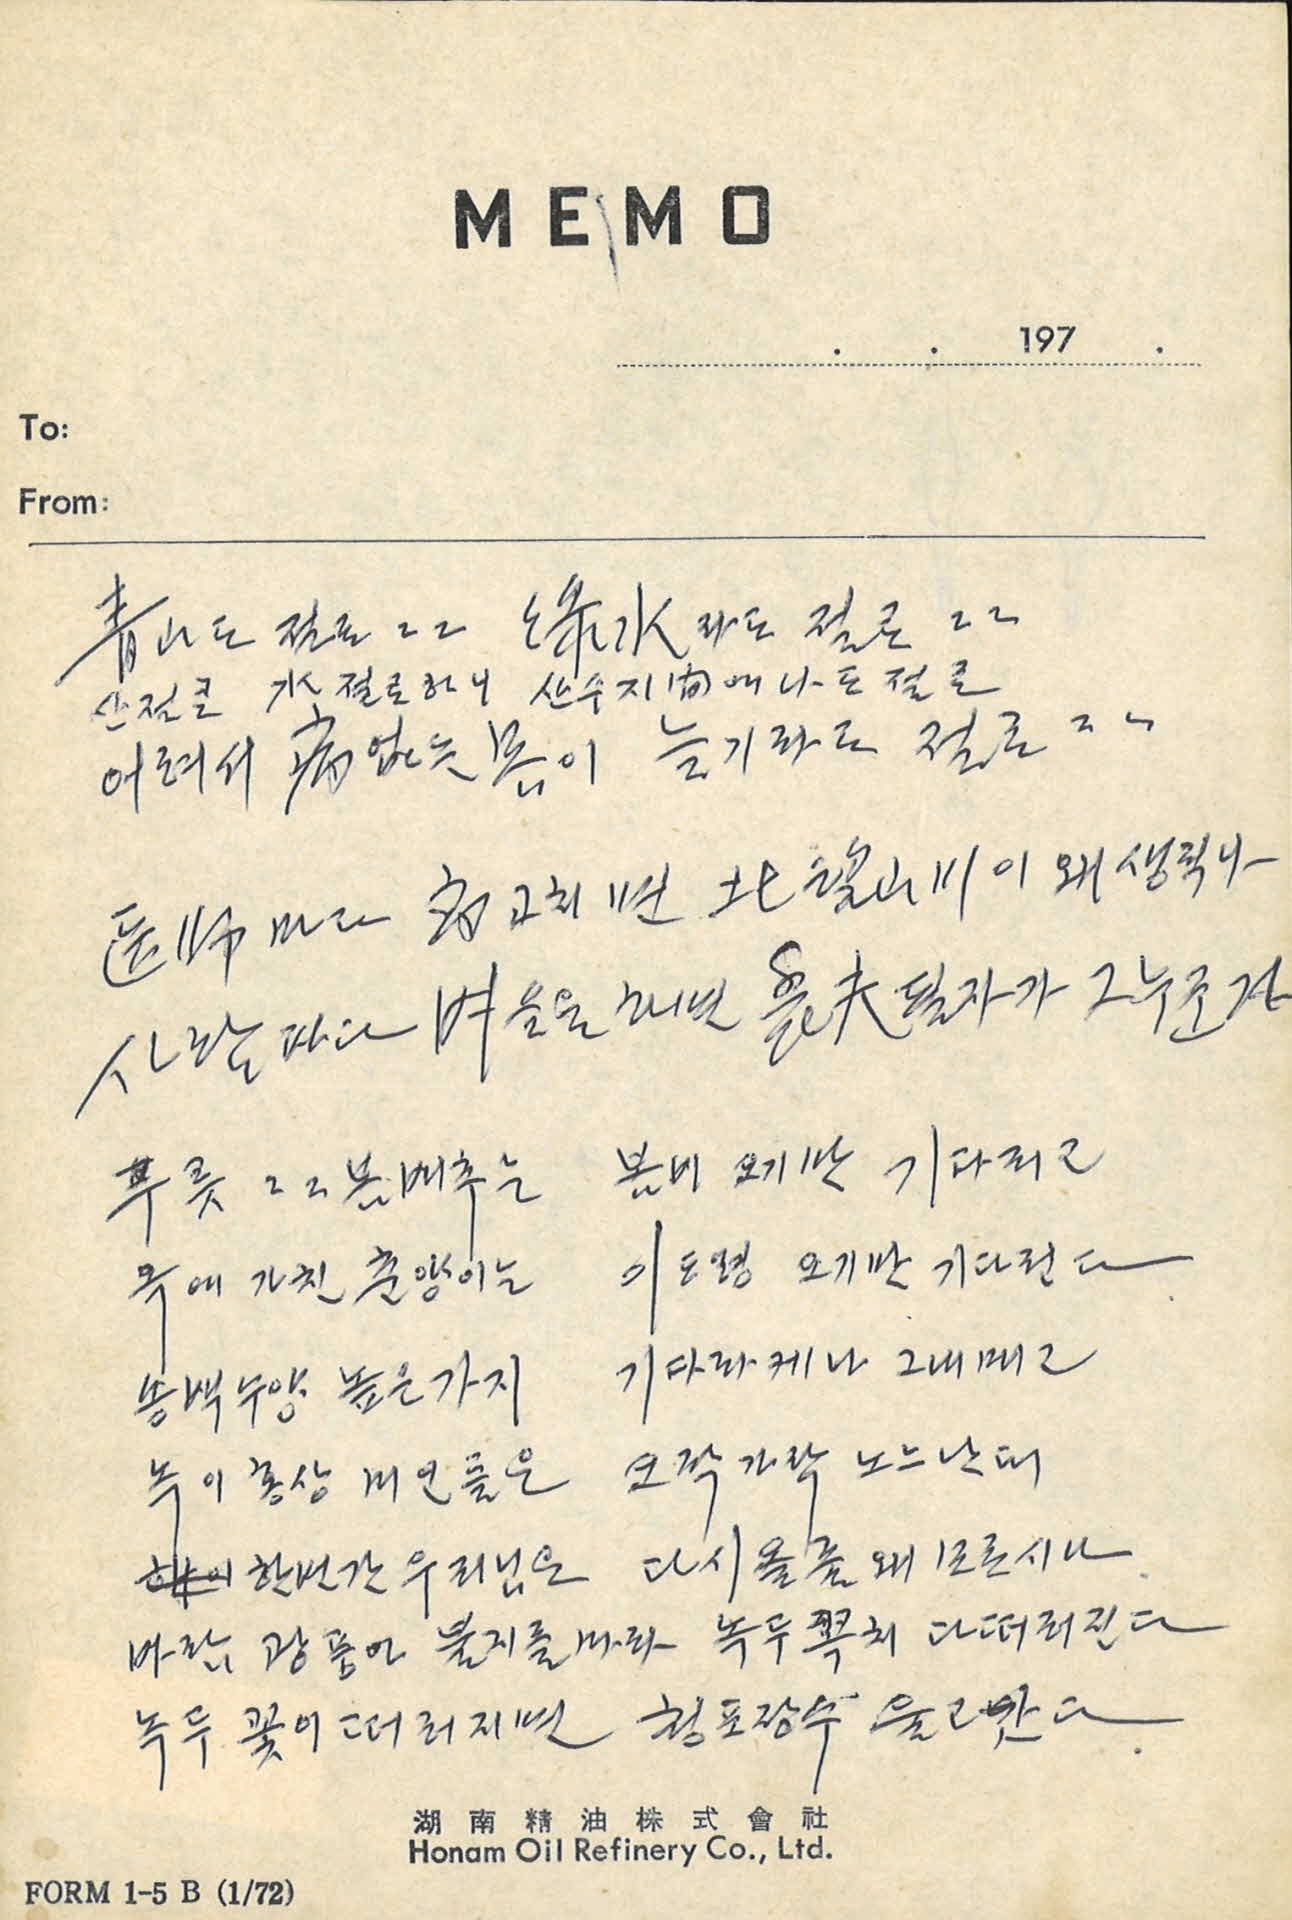 MEMO
. . 197 .
To:
From:
青山도 절로 〻 綠水라도 절로 〻
산절로 水절로하니 산수지間에 나도 절로
어려서 病없는 몸이 늘기라도 절로 〻
医師마다 病고치면 北邙山이 왜 생기나
사랑마다 벼을을 하면 農夫될자가 그누군가
푸릇 〻 봄배추는 봄비 오기만 기다리고
옥에 가친 춘양이는 이도령 오기만 기다린다.
송백수양 높은가지 기다라케나 그내매고
녹이홍상 미인들은 오락가락 노느난대
한번간 우리님은 다시올줄 왜 모르시나
바람 광풍아 불지를마라 녹두꼭치 다떠러진다
녹두 꽃이 떠러지면 청포장수 울고간다.
湖南精油株式會社
Honam Oil Refinery Co., Ltd.
FORM 1-5 B (1/72)